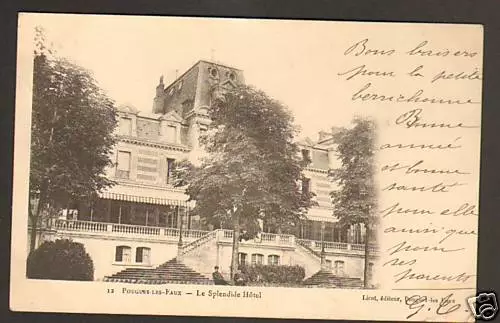 Bons baisers
pour la petite
berrichonne
Bonne
année
et bonne
santé
pour elle
ainsi que
pour
ses parents
G. C.
12 POUGUES-LES-EAUX — Le Splendide Hôtel
Licot, éditeur, Pougues-les-Eaux